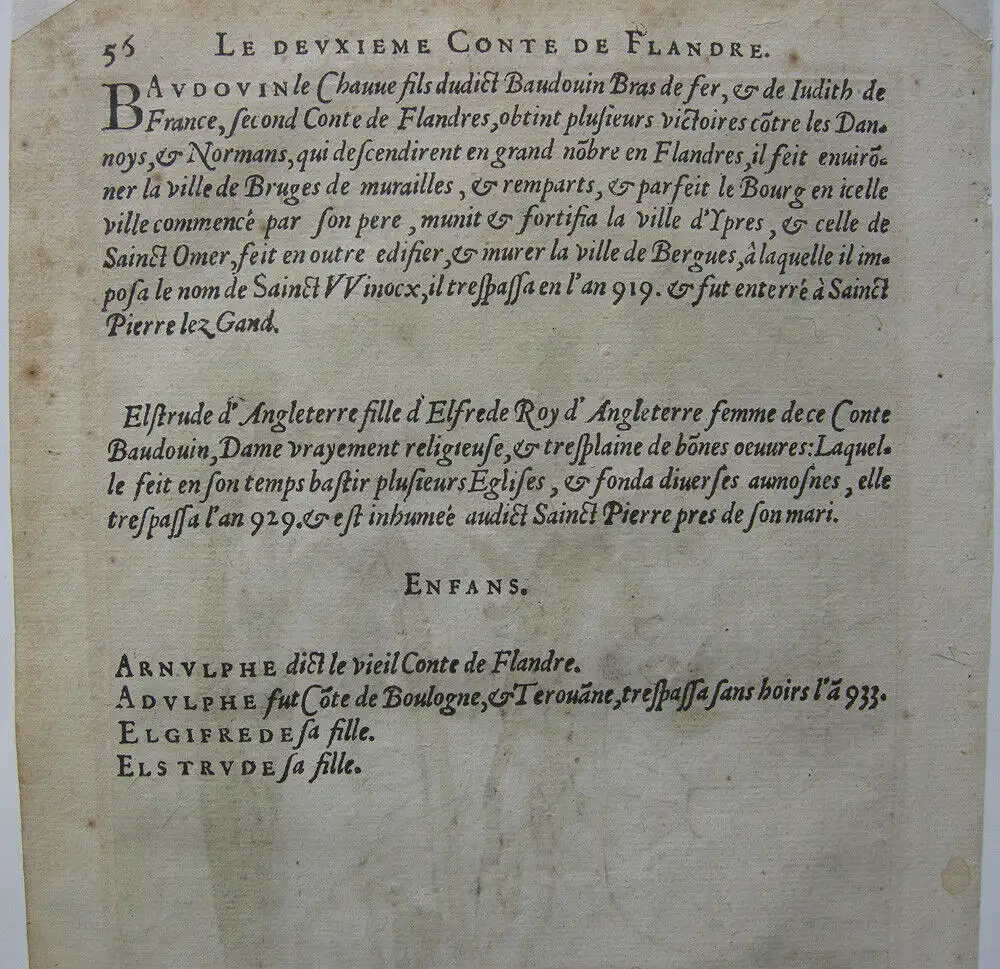 56 LE DEVXIEME CONTE DE FLANDRE.
BAVDOVIN le Chauue fils dudict Baudouin Bras de fer, & de Iudith de
France, ſecond Conte de Flandres, obtint pluſieurs victoires cōtre les Dan-
noys, & Normans, qui deſcendirent en grand nōbre en Flandres, il feit enuirō-
ner la ville de Bruges de murailles, & remparts, & parfeit le Bourg en icelle
ville commencé par ſon pere, munit & fortifia la ville d'Ypres, & celle de
Sainct Omer, feit en outre edifier, & murer la ville de Bergues, à laquelle il im-
poſa le nom de Sainct VVinocx, il treſpaſſa en l'an 919. & fut enterré à Sainct
Pierre lez Gand.
Elſtrude d'Angleterre fille d'Elfrede Roy d'Angleterre femme de ce Conte
Baudouin, Dame vrayement religieuſe, & treſplaine de bōnes oeuures: Laquel-
le feit en ſon temps baſtir pluſieurs Egliſes, & fonda diuerſes aumoſnes, elle
treſpaſſa l'an 929. & eſt inhumeé audict Sainct Pierre pres de ſon mari.
ENFANS.
ARNVLPHE dict le vieil Conte de Flandre.
ADVLPHE fut Cōte de Boulogne, & Terouāne, treſpaſſa ſans hoirs l'ā 933.
ELGIFREDE ſa fille.
ELSTRVDE ſa fille.